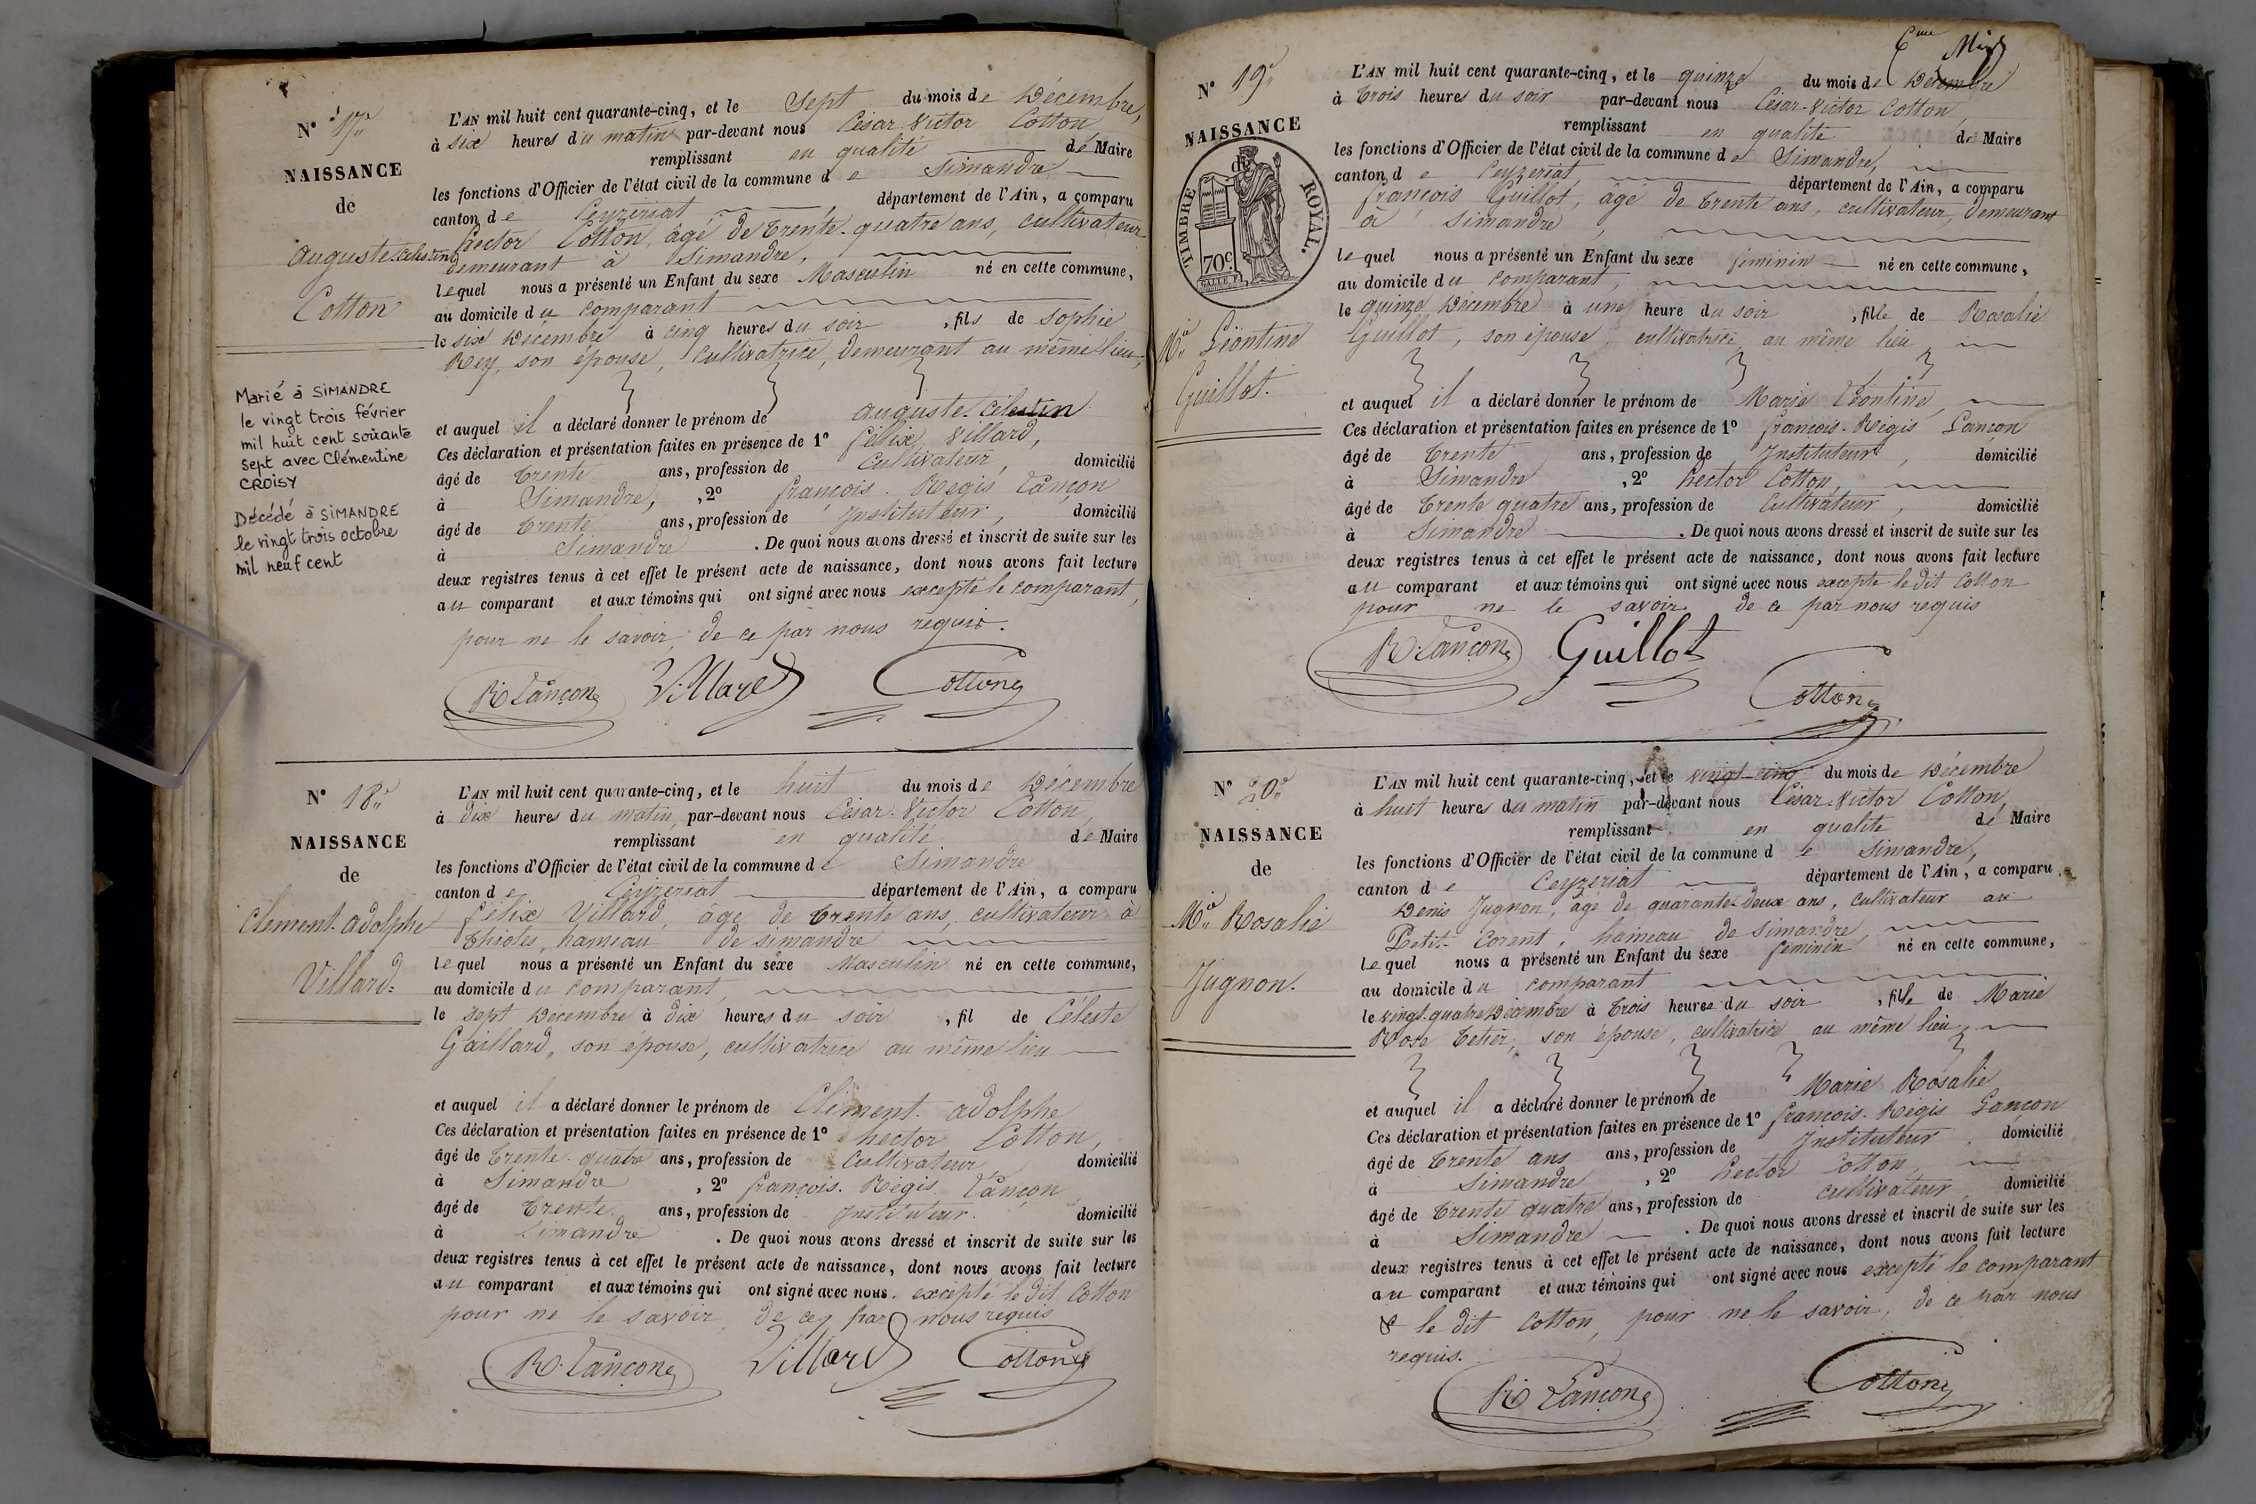 N° 17e
NAISSANCE
de
Auguste Célestin
Cotton
Marié à SIMANDRE
le vingt trois février
mil huit cent soixante
sept avec Clémentine
CROISY
Décédé à SIMANDRE
le vingt trois octobre
mil neuf cent
L'AN mil huit cent quarante-cinq, et le Sept du mois de Décembre,
à six heures du matin par-devant nous César Victor Cotton
remplissant en qualité de Maire
les fonctions d'Officier de l'état civil de la commune de Simandre
canton de Ceyzériat, département de l'Ain, a comparu
hector Cotton, âgé de trente-quatre ans, cultivateur
demeurant à Simandre,
lequel nous a présenté un Enfant du sexe Masculin né en cette commune,
au domicile du comparant
le six Décembre à cinq heures du soir, fils de Sophie
Rey, son épouse, Cultivatrice, demeurant au même lieu,
et auquel il a déclaré donner le prénom de auguste-Célestin
Ces déclaration et présentation faites en présence de 1° Félix Villard,
âgé de trente ans, profession de Cultivateur, domicilié
à Simandre, , 2° françois-Régis Lançon
âgé de trente ans, profession de Instituteur, domicilié
à Simandre . De quoi nous avons dressé et inscrit de suite sur les
deux registres tenus à cet effet le présent acte de naissance, dont nous avons fait lecture
au comparant et aux témoins qui ont signé avec nous excepté le comparant,
pour ne le savoir, de ce par nous requis.
R. Lançon Villard Cotton
N° 18e
NAISSANCE
de
Clément-adolphe
Villard
L'AN mil huit cent quarante-cinq, et le huit du mois de Décembre
à dix heures du matin, par-devant nous César-Victor Cotton,
remplissant en qualité de Maire
les fonctions d'Officier de l'état civil de la commune de Simandre
canton de Ceyzériat département de l'Ain, a comparu
félix Villard, âgé de trente ans, cultivateur à
Thioles, hameau de simandre
lequel nous a présenté un Enfant du sexe Masculin né en cette commune,
au domicile du comparant,
le sept Decembre à dix heures du soir , fil de Céleste
Gaillard, son épouse, cultivatrice au même lieu
et auquel il a déclaré donner le prénom de Clément-adolphe
Ces déclaration et présentation faites en présence de 1° hector Cotton,
âgé de trente-quatre ans, profession de Cultivateur domicilié
à Simandre , 2° françois-Régis Lançon
âgé de trente ans, profession de Instituteur domicilié
à Simandre . De quoi nous avons dressé et inscrit de suite sur les
deux registres tenus à cet effet le présent acte de naissance, dont nous avons fait lecture
au comparant et aux témoins qui ont signé avec nous. excepté le dit Cotton
pour ne le savoir de ce par nous requis
R. Lançon Villard Cotton
6me
N° 19e
NAISSANCE
TIMBRE ROYAL.
70c
Mie Léontine
Guillot.
L'AN mil huit cent quarante-cinq, et le quinze du mois de Décembre
à trois heures du soir par-devant nous César-Victor Cotton,
remplissant en qualité de Maire
les fonctions d'Officier de l'état civil de la commune de Simandre,
canton de Ceyzériat département de l'Ain, a comparu
françois Guillot, âgé de trente ans, cultivateur, demeurant
à Simandre,
lequel nous a présenté un Enfant du sexe féminin né en cette commune,
au domicile du comparant,
le quinze Décembre à une heure du soir , fille de Rosalie
Guillot, son épouse, cultivatrice au même lieu
et auquel il a déclaré donner le prénom de Marie Léontine,
Ces déclaration et présentation faites en présence de 1° françois-Régis Lançon
âgé de trente ans, profession de Instituteur, domicilié
à Simandre , 2° hector Cotton,
âgé de trente quatre ans, profession de Cultivateur, domicilié
à Simandre . De quoi nous avons dressé et inscrit de suite sur les
deux registres tenus à cet effet le présent acte de naissance, dont nous avons fait lecture
au comparant et aux témoins qui ont signé avec nous excepté le dit Cotton
pour ne le savoir de ce par nous requis
R. Lançon Guillot Cotton
N° 20e
NAISSANCE
de
Mie Rosalie
Jugnon.
L'AN mil huit cent quarante-cinq, et le vingt-cinq du mois de Décembre
à huit heures du matin par-devant nous César-Victor Cotton,
remplissant en qualité de Maire
les fonctions d'Officier de l'état civil de la commune de Simandre,
canton de Ceyzériat département de l'Ain, a comparu
Denis Jugnon, âgé de quarante-deux ans, cultivateur au
Petit-Corent, hameau de Simandre,
lequel nous a présenté un Enfant du sexe féminin né en cette commune,
au domicile du comparant
le vingt-quatre Décembre à trois heures du soir , fille de Marie
Rose Tetier, son épouse, cultivatrice au même lieu,
et auquel il a déclaré donner le prénom de Marie Rosalie
Ces déclaration et présentation faites en présence de 1° françois-Régis Lançon
âgé de trente ans ans, profession de Instituteur domicilié
à Simandre , 2° hector Cotton,
âgé de trente quatre ans, profession de cultivateur, domicilié
à Simandre . De quoi nous avons dressé et inscrit de suite sur les
deux registres tenus à cet effet le présent acte de naissance, dont nous avons fait lecture
au comparant et aux témoins qui ont signé avec nous excepté le comparant
& le dit Cotton, pour ne le savoir, de ce par nous
requis.
R. Lançon Cotton